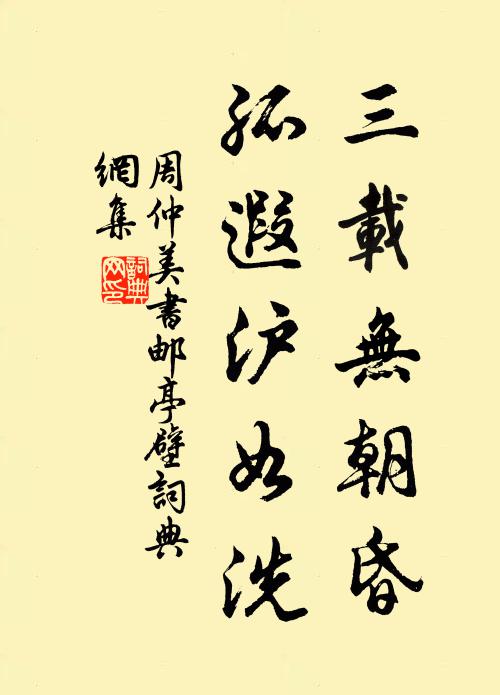 三載無朝昏
孤遐沪如洗
周仲美書邮亭壁詞典
網集
詞典
网印